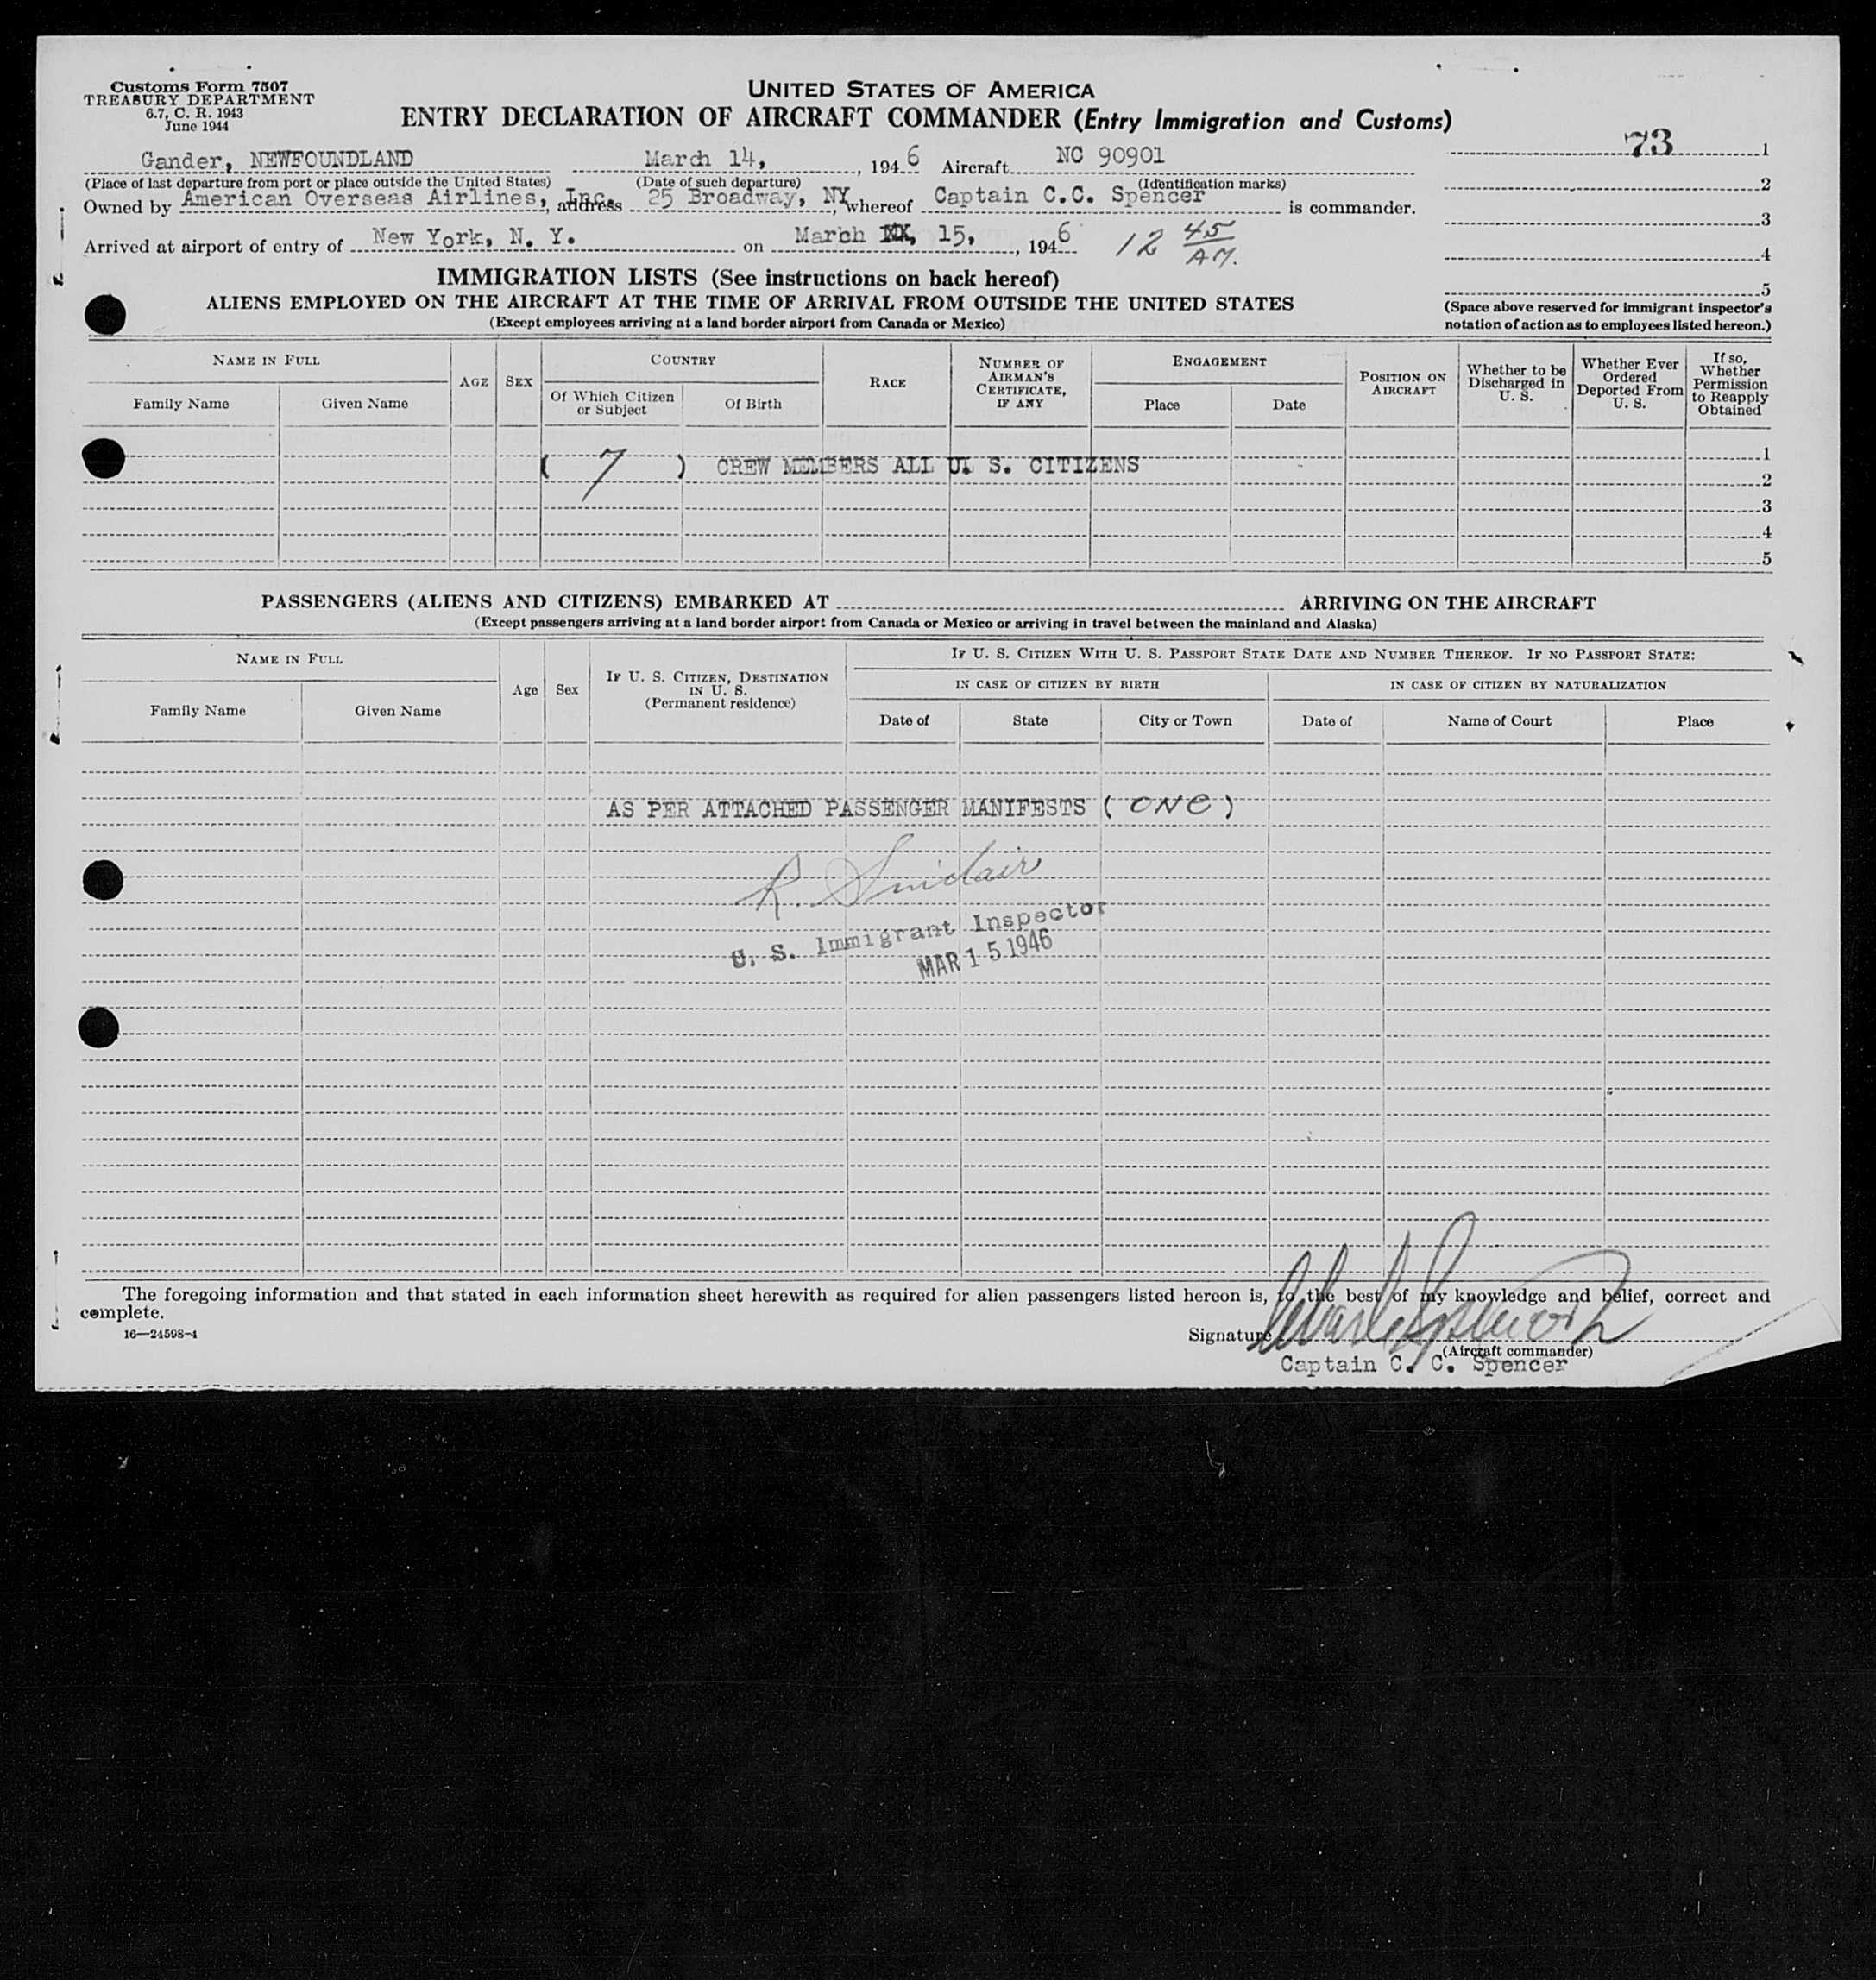 Customs Form 7507
TREASURY DEPARTMENT
6.7, C. R. 1943
June 1944
UNITED STATES OF AMERICA
ENTRY DECLARATION OF AIRCRAFT COMMANDER (Entry Immigration and Customs)
73 1
2
3
4
5
(Space above reserved for immigrant inspector's
notation of action as to employees listed hereon.)
Gander, NEWFOUNDLAND March 14, , 1946 Aircraft NC 90901
(Place of last departure from port or place outside the United States) (Date of such departure) (Identification marks)
Owned by American Overseas Airlines, Inc. , address 25 Broadway, NY , whereof Captain C.C. Spencer is commander.
Arrived at airport of entry of New York, N. Y. on March 15, , 1946 12 45 AM.
IMMIGRATION LISTS (See instructions on back hereof)
ALIENS EMPLOYED ON THE AIRCRAFT AT THE TIME OF ARRIVAL FROM OUTSIDE THE UNITED STATES
(Except employees arriving at a land border airport from Canada or Mexico)
NAME IN FULL
Family Name
Given Name
AGE
SEX
COUNTRY
Of Which Citizen
or Subject
Of Birth
RACE
NUMBER OF
AIRMAN'S
CERTIFICATE,
IF ANY
ENGAGEMENT
Place
Date
POSITION ON
AIRCRAFT
Whether to be
Discharged in
U. S.
Whether Ever
Ordered
Deported From
U. S.
If so,
Whether
Permission
to Reapply
Obtained
1
( 7 ) CREW MEMBERS ALL U. S. CITIZENS
2
3
4
5
PASSENGERS (ALIENS AND CITIZENS) EMBARKED AT ARRIVING ON THE AIRCRAFT
(Except passengers arriving at a land border airport from Canada or Mexico or arriving in travel between the mainland and Alaska)
NAME IN FULL
Family Name
Given Name
Age
Sex
IF U. S. CITIZEN, DESTINATION
IN U. S.
(Permanent residence)
IF U. S. CITIZEN WITH U. S. PASSPORT STATE DATE AND NUMBER THEREOF. IF NO PASSPORT STATE:
IN CASE OF CITIZEN BY BIRTH
Date of
State
City or Town
IN CASE OF CITIZEN BY NATURALIZATION
Date of
Name of Court
Place
AS PER ATTACHED PASSENGER MANIFESTS ( ONE )
R. Sinclair
U. S. Immigrant Inspector
MAR 15 1946
The foregoing information and that stated in each information sheet herewith as required for alien passengers listed hereon is, to the best of my knowledge and belief, correct and
complete.
16—24598-4
Signature
(Aircraft commander)
Captain C. C. Spencer